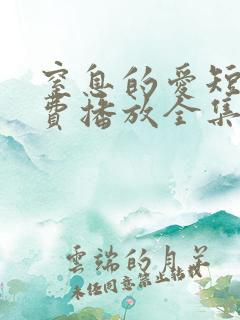 窒息的愛短
費播放全集
雲端的月芽
未任同意禁止転載